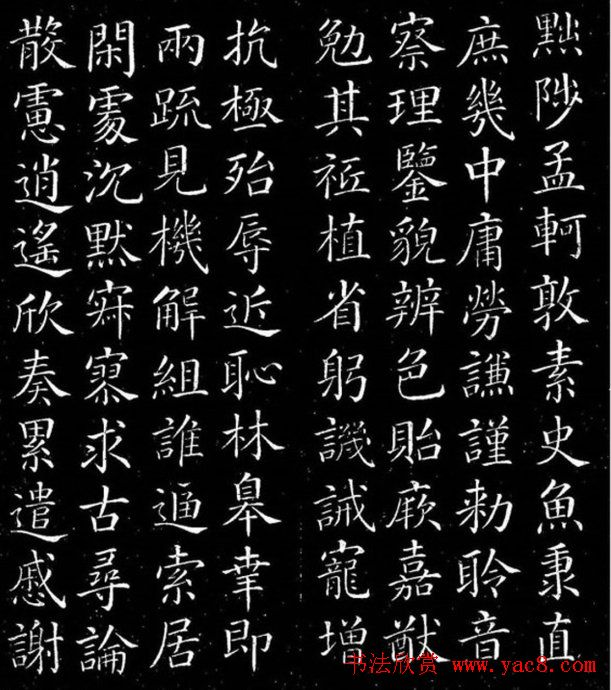 黜陟孟軻敦素史魚秉直
庶幾中庸勞謙謹勑聆音
察理鑒貌辨色貽厥嘉猷
勉其祗植省躬譏誡寵增
抗極殆辱近恥林皋幸即
兩疏見機解組誰逼索居
閑處沉默寂寥求古尋論
散慮逍遙欣奏累遣慼謝
书法欣赏 www.yac8.com